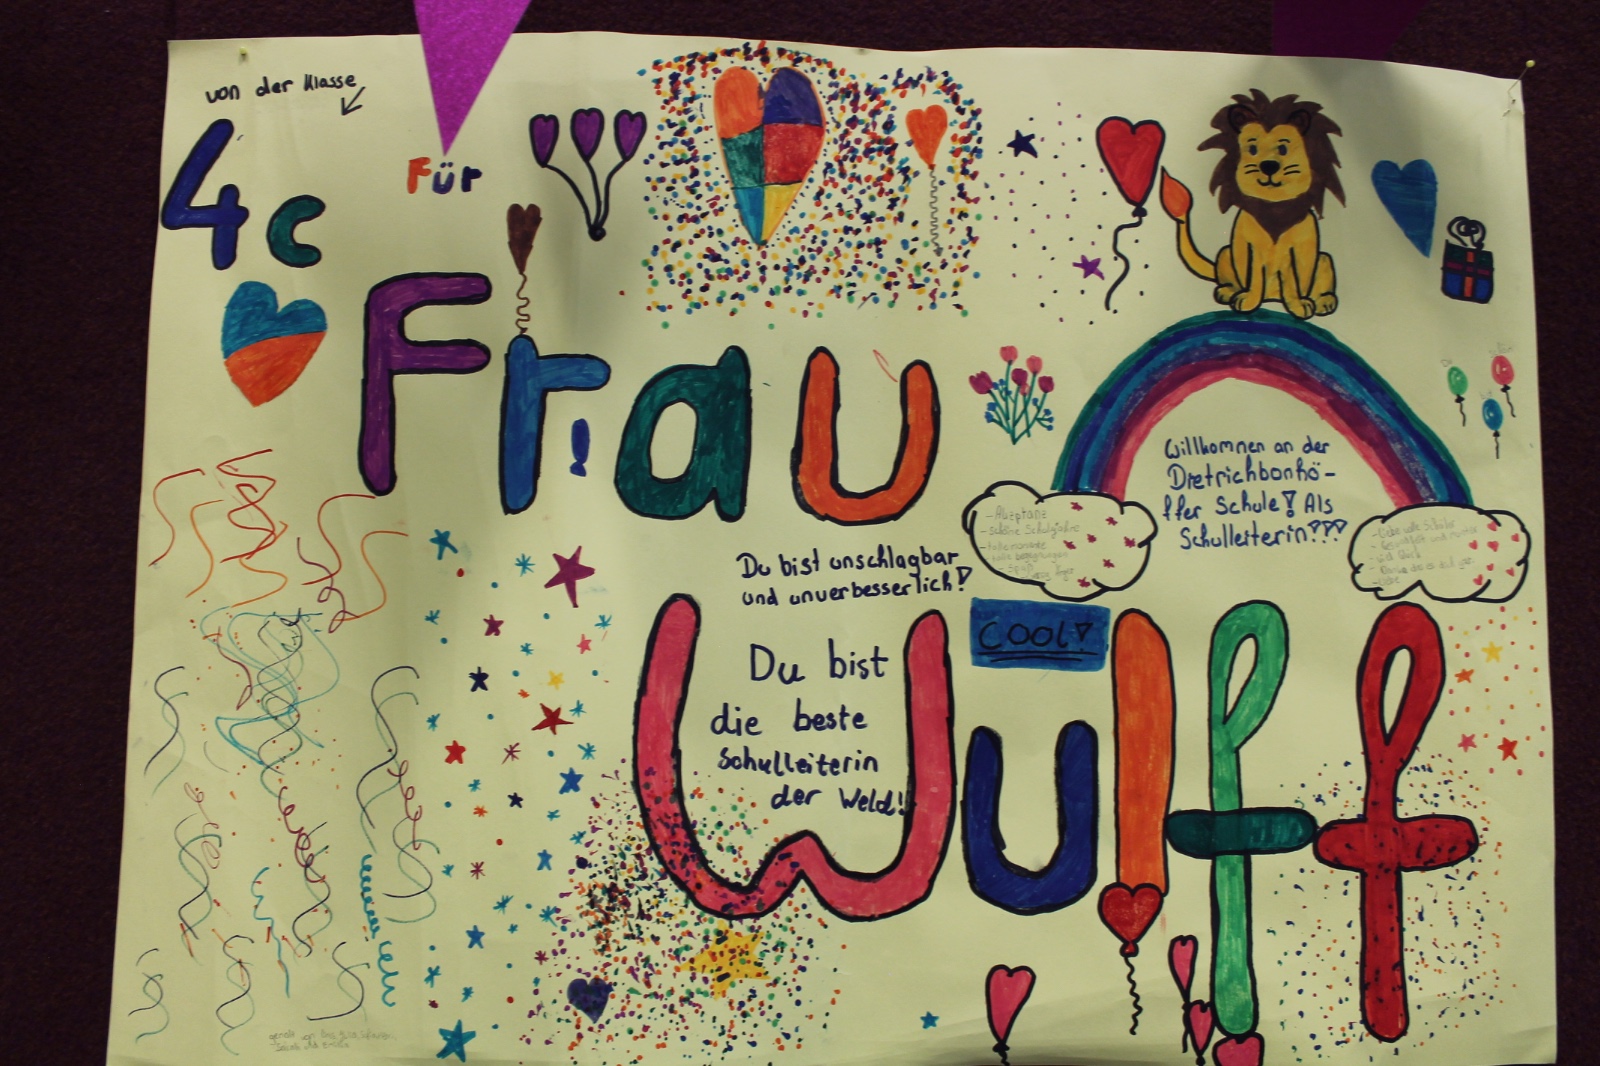 von der Klasse
4c
Für
Frau
Willkommen an der
Dietrichbonhö-
ffer Schule! Als
Schulleiterin???
- Akzptanz
- schöne Schulejahre
- tolle momente
- Spaß
- Liebe volle Schüler
- Gesundheit und
- viel Glück
- Liebe
Du bist unschlagbar
und unverbesserlich!
COOL!
Wulff
Du bist
die beste
Schulleiterin
der Weld!
gemalt von